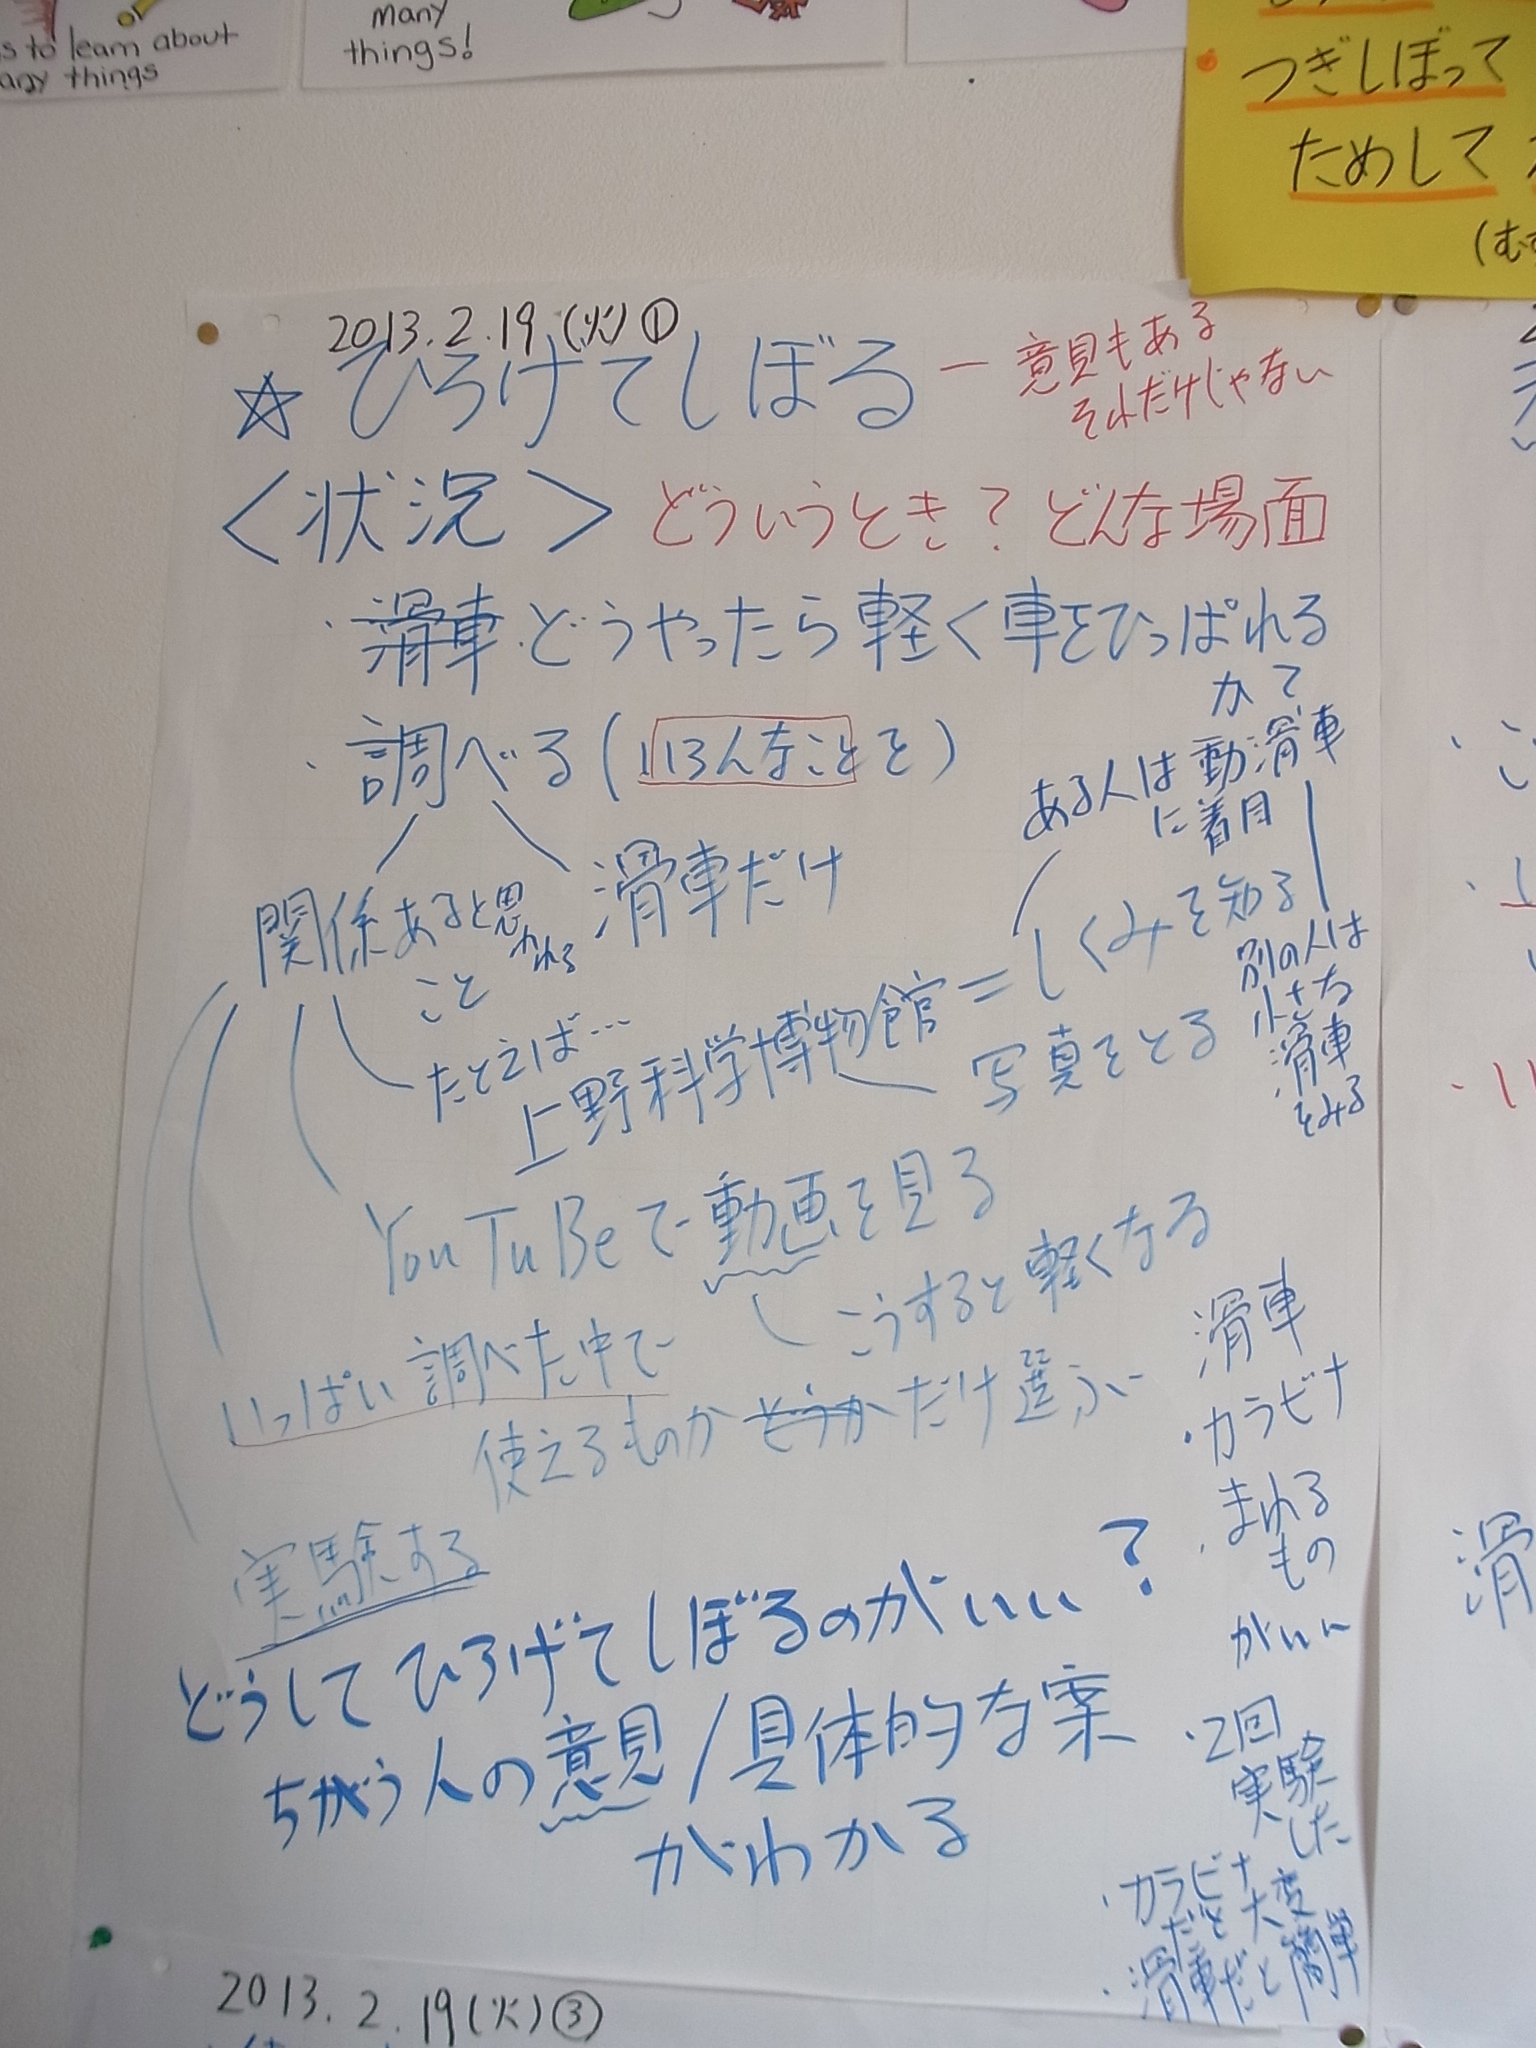 s to learn about
many things
many
things!
つぎしぼって
ためして
2013.2.19(火)①
☆ ひろげてしぼる ー 意見もある
それだけじゃない
<状況> どういうとき? どんな場面
・滑車 どうやったら軽く車をひっぱれる
かて
・調べる(いろんなことを)
ある人は動滑車
に着目
関係あると思われる
こと
滑車だけ
たとえば…
上野科学博物館=しくみを知る
写真をとる
別の人は
小さな
滑車
をみる
YouTuBeで動画を見る
こうすると軽くなる
いっぱい調べた中で
使えるものか どうか だけ選ぶ
実験する
滑車
・カラビナ
・まわる
もの
がいい
・2回
実験
した
・カラビナ
だと大変
・滑車だと簡単
どうしてひろげてしぼるのがいい?
ちがう人の意見/具体的な案
がわかる
2013.2.19(火)③
滑